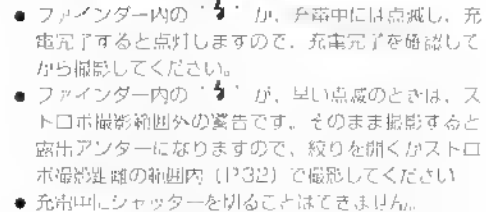 ● ファインダー内の“⚡”が、充電中には点滅し、充
電完了すると点灯しますので、充電完了を確認して
から撮影してください。
● ファインダー内の“⚡”が、早い点滅のときは、ス
トロボ撮影範囲外の警告です。そのまま撮影すると
露出アンダーになりますので、絞りを開くかストロ
ボ撮影距離の範囲内（P32）で撮影してください
● 充電中にシャッターを切ることはできません。